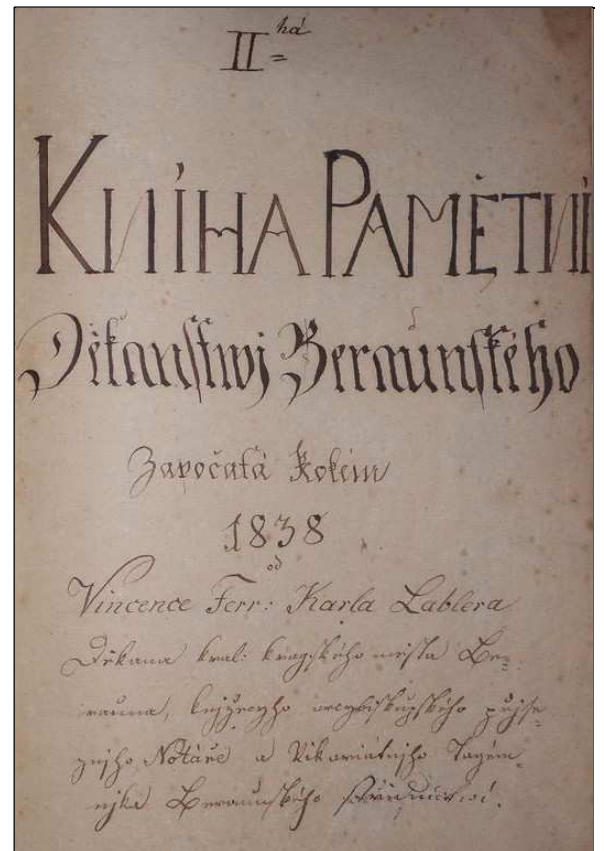 II há
KNÍHA PAMĚTNÍ
Děkanstwj Beraunského
Započatá Rokem
1838
od
Vincence Ferr: Karla Lablera
Děkana kral: kragského města Be=
rauna, knjžecyho arcybiskupského přjse=
znjho Notáře a Vikariatnjho Tagem=
njka Beraunského